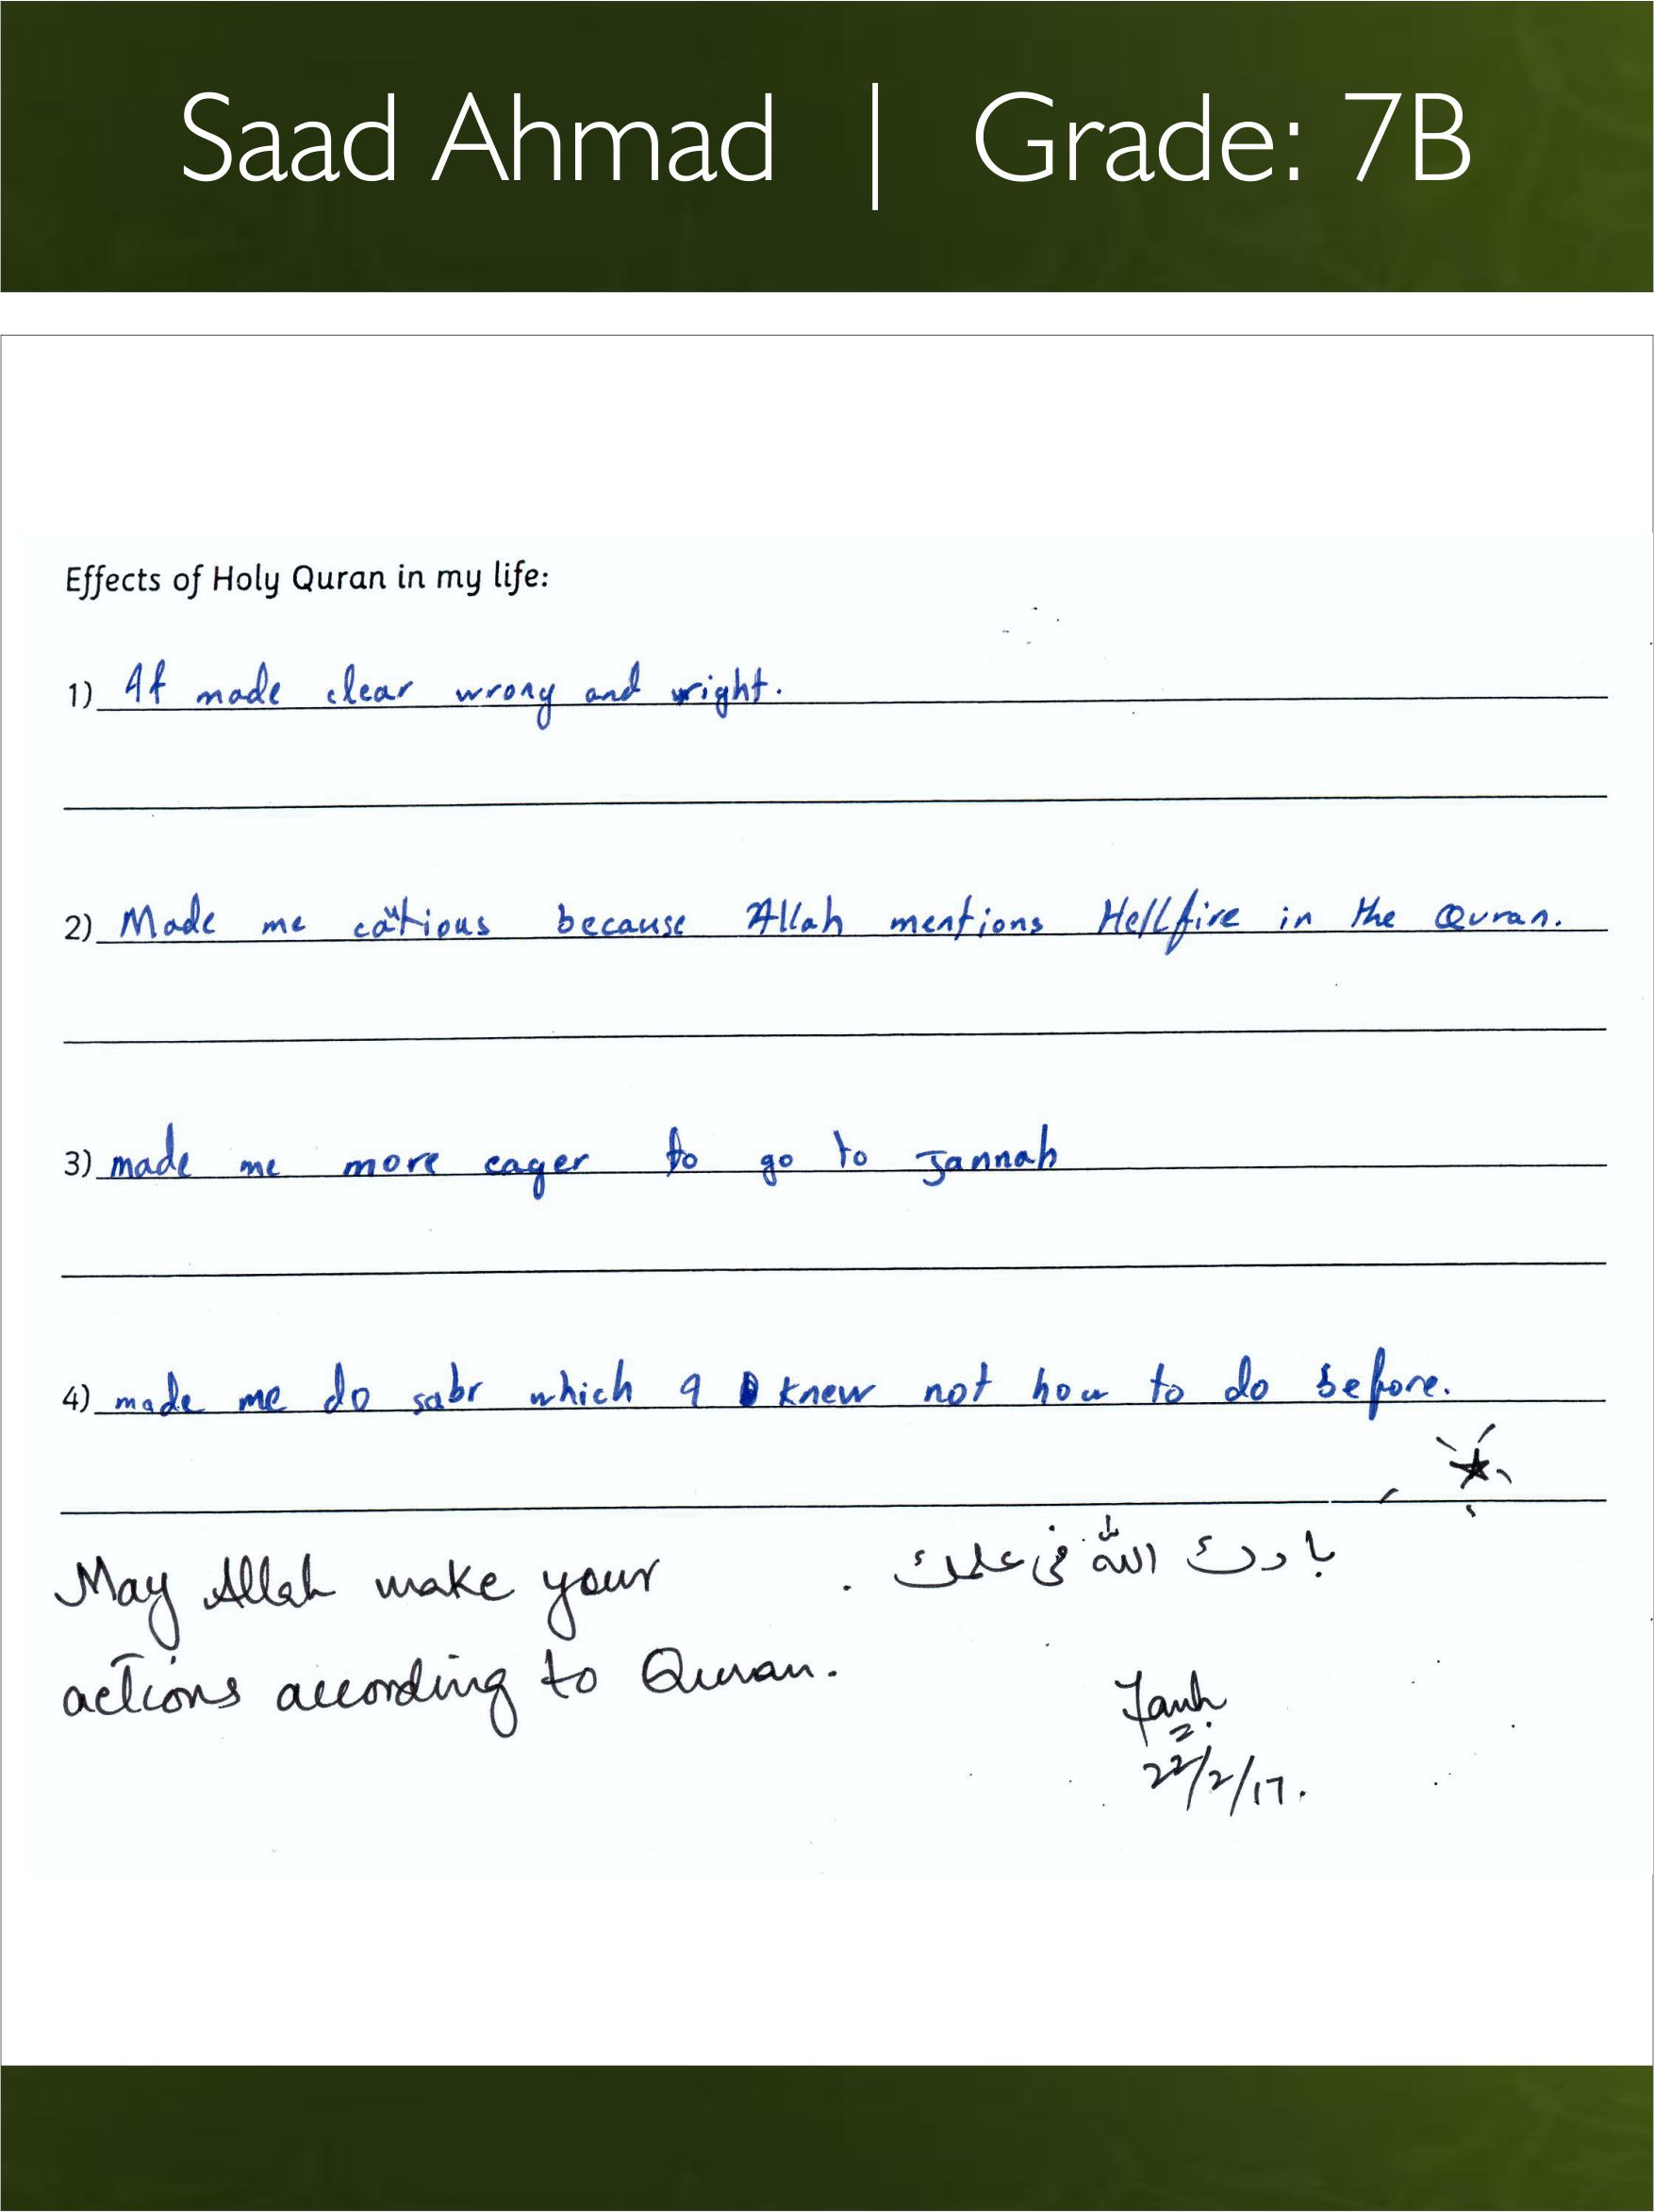 Saad Ahmad | Grade: 7B
Effects of Holy Quran in my life:
1) It made clear wrong and wright.
2) Made me cautious because Allah mentions Hellfire in the Quran.
3) made me more eager to go to Jannah
4) made me do sabr which I knew not how to do before.
بارك الله في علمك .
May Allah make your
actions according to Quran.
22/2/17.